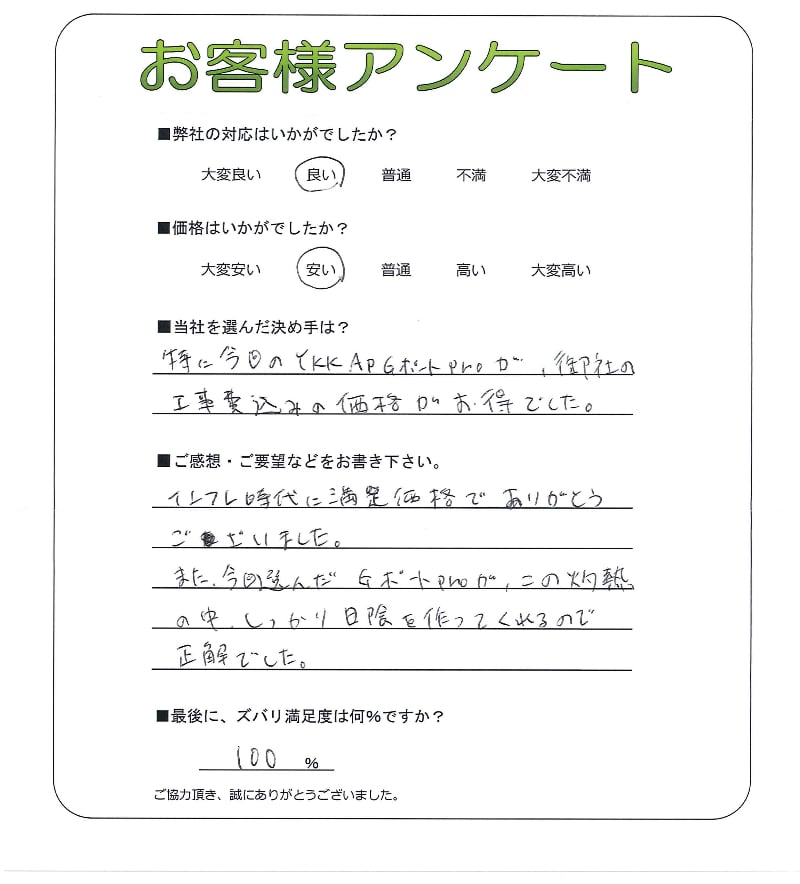 お客様アンケート
■弊社の対応はいかがでしたか？
大変良い 良い 普通 不満 大変不満
■価格はいかがでしたか？
大変安い 安い 普通 高い 大変高い
■当社を選んだ決め手は？
特に今回のYKK AP Gポートproが、御社の
工事費込みの価格がお得でした。
■ご感想・ご要望などをお書き下さい。
インフレ時代に満足価格でありがとう
ございました。
また、今回選んだGポートproが、この灼熱
の中、しっかり日陰を作ってくれるので
正解でした。
■最後に、ズバリ満足度は何%ですか？
100 %
ご協力頂き、誠にありがとうございました。